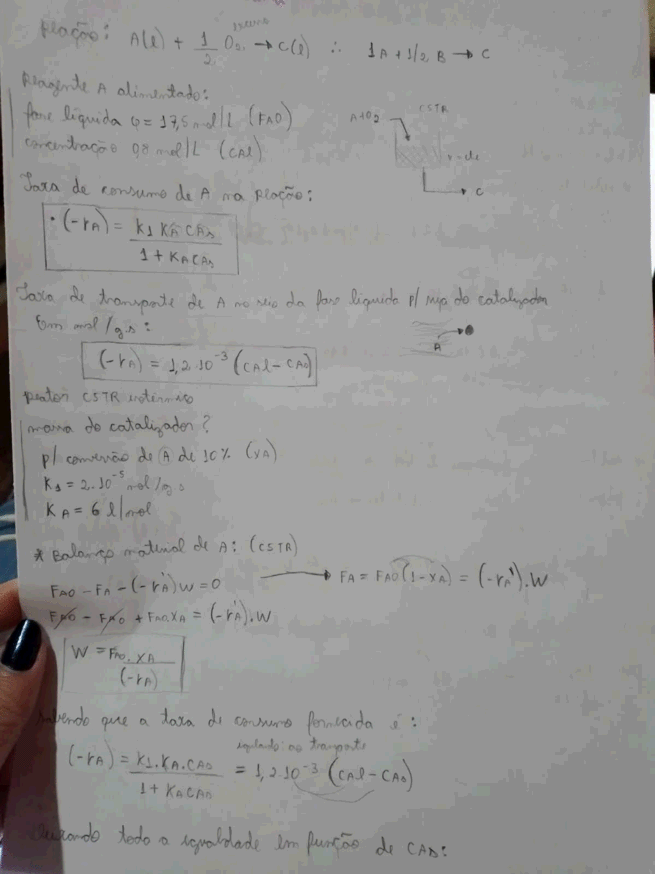 Reação: A(l) + 1/2 O2 → C(l) ∴ 1A + 1/2 B → C
Reagente A alimentado:
fase líquida = 17,5 mol/L (FA0)
concentração 0,8 mol/L (CAl)
A+O2 CSTR
C
Taxa de consumo de A na Reação:
• (-rA) = K1 KA CAs / 1 + KA CAs
Taxa de transporte de A no seio da fase líquida p/ sup do catalizador
Em mol/g s:
(-rA) = 1,2.10^-3 (CAl - CAs)
A
reator CSTR isotérmico
massa do catalizador?
p/ conversão de A de 10% (XA)
K1 = 2.10^-5 mol/g s
KA = 6 l/mol
* Balanço material de A: (CSTR)
FA0 - FA - (-rA')W = 0 → FA = FA0(1-XA) = (-rA').W
FA0 - FA0 + FA0XA = (-rA').W
W = FA0.XA / (-rA)
Sabendo que a taxa de consumo fornecida é:
igualando ao transporte
(-rA) = K1.KA.CAs / 1 + KA CAs = 1,2.10^-3 (CAl - CAs)
todo a igualdade em função de CAs: